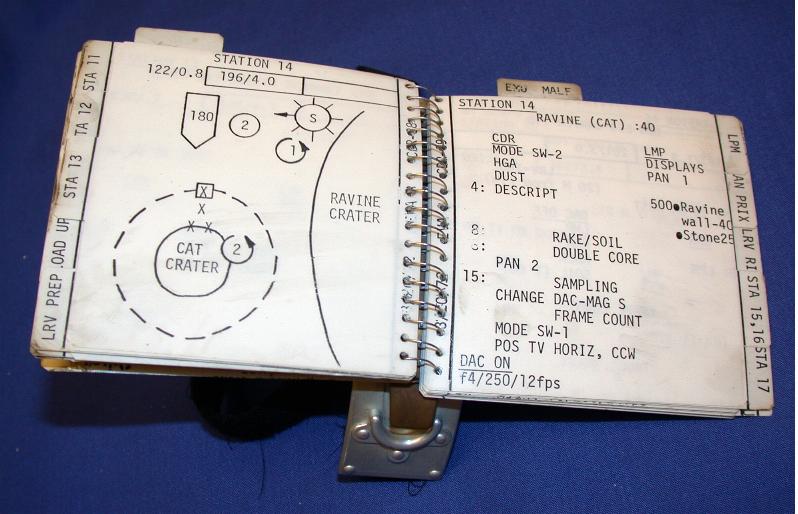 STATION 14
122/0.8
196/4.0
180
2
S
1
RAVINE
CRATER
X
X
X X
CAT
CRATER
2
STA 11
TA 12
STA 13
OAD UP
LRV PREP
EMU MALF
STATION 14
RAVINE (CAT) :40
CDR
MODE SW-2
HGA
DUST
LMP
DISPLAYS
PAN 1
4: DESCRIPT
500●Ravine
wall-40
●Stone25
8: RAKE/SOIL
DOUBLE CORE
PAN 2
15: SAMPLING
CHANGE DAC-MAG S
FRAME COUNT
MODE SW-1
POS TV HORIZ, CCW
DAC ON
f4/250/12fps
LPM
AN PRIX
LRV RI
STA 15,16
STA 17